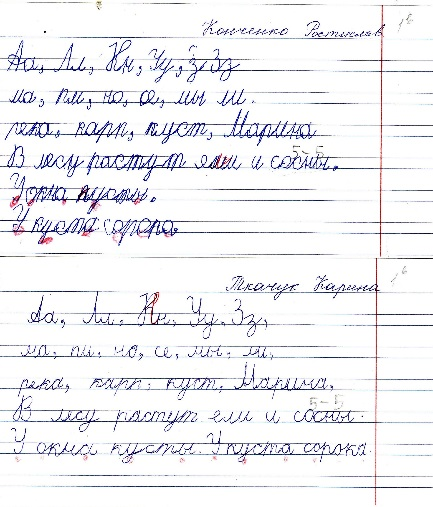 Конченко Ростислав 1Б
Аа, Лл, Нн, Уу, Зз Зз
ма, пи, но, се, мы ли.
река, карп, куст, Марина
5-5
В лесу растут ели и сосны.
У окна кусты.
У куста сорока.
Ткачук Карина 1б
Аа, Лл, Нн, Уу, Зз,
ма, пи, но, се, мы, ли,
река, карп, куст, Марина.
5-5
В лесу растут ели и сосны.
У окна кусты. У куста сорока.